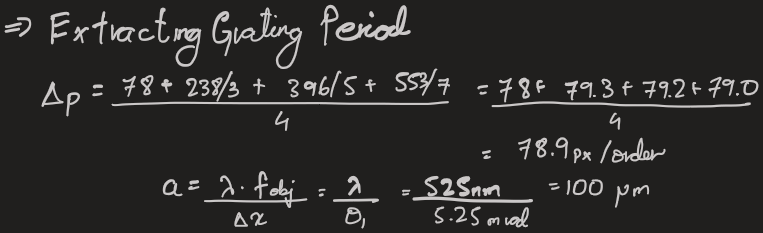 ⇒ Extracting Grating Period
Δp = (78 + 238/3 + 396/5 + 553/7) / 4 = (78 + 79.3 + 79.2 + 79.0) / 4
= 78.9 px / order
a = λ · f_obj / Δx = λ / θ₁ = 525nm / 5.25 mrad = 100 μm